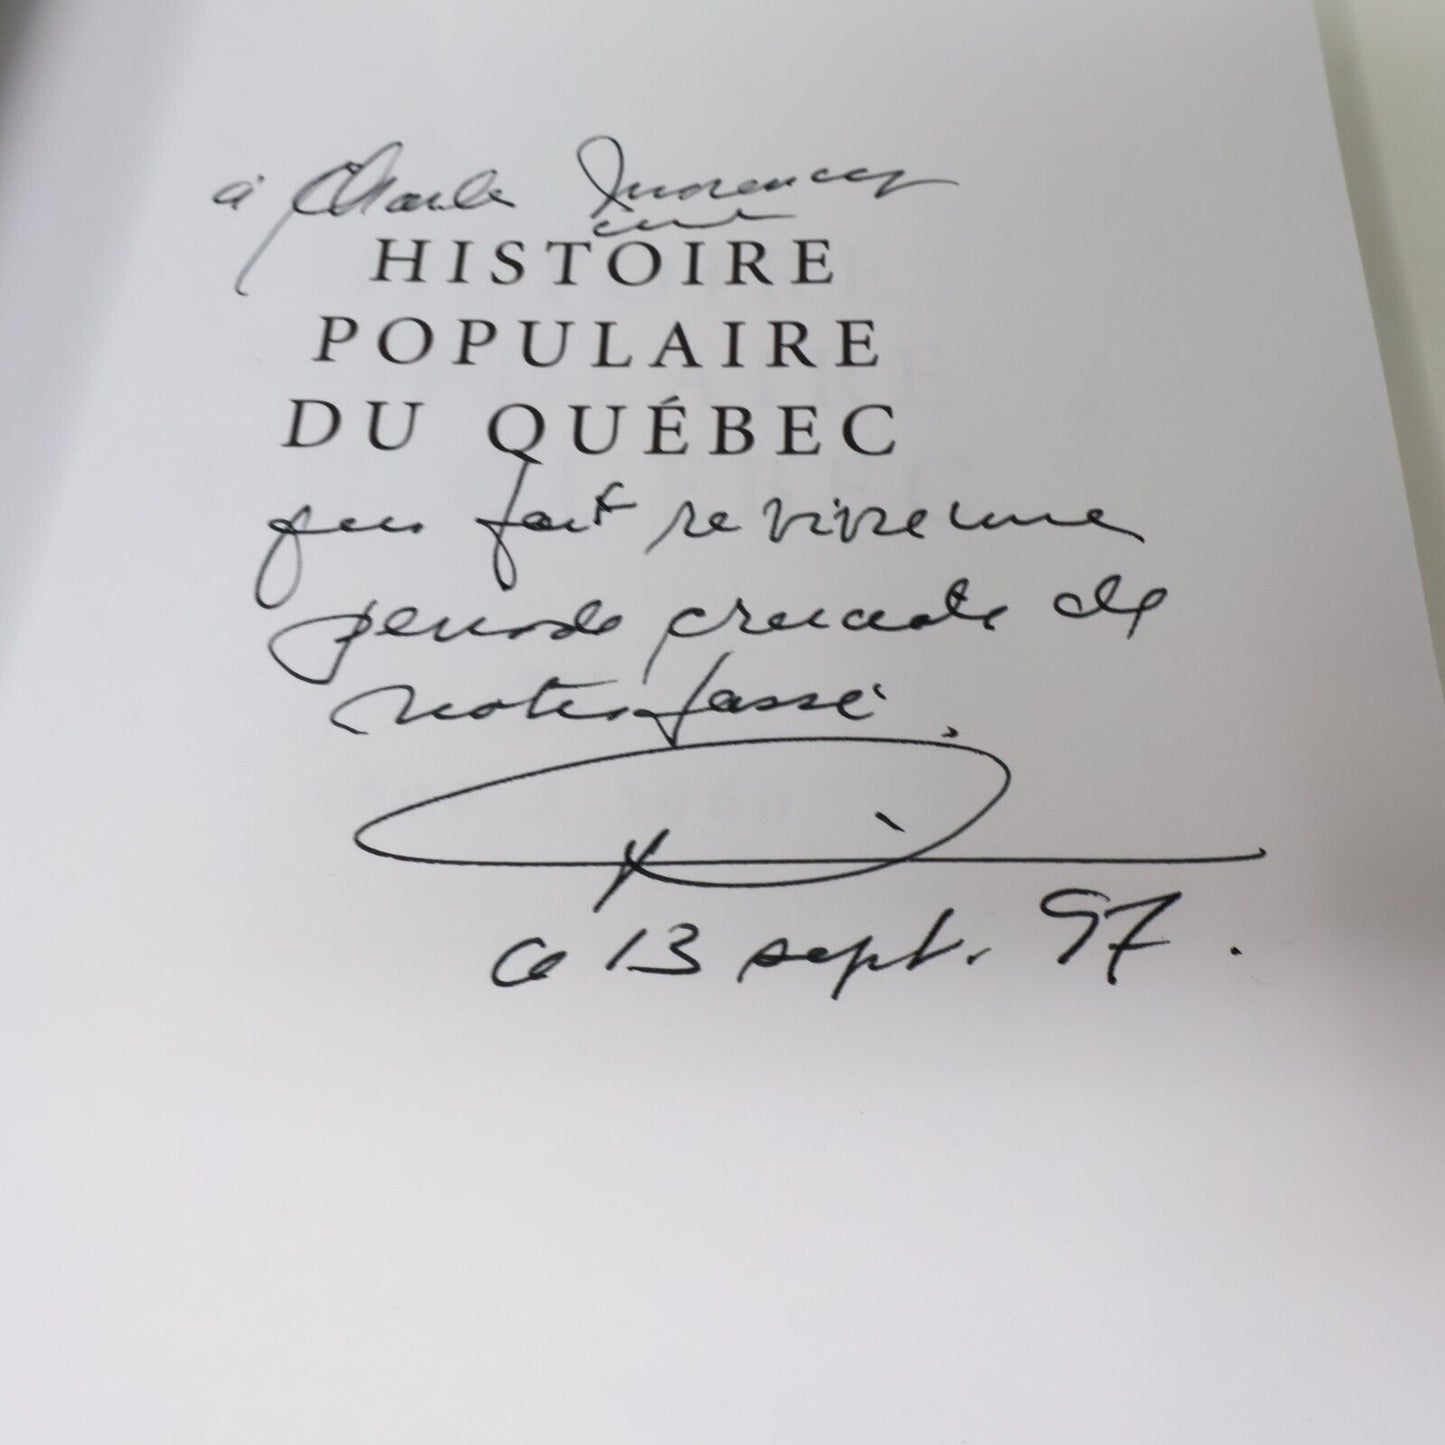 à Charles
une
HISTOIRE
POPULAIRE
DU QUÉBEC
qui fait revivre une
période cruciale de
notre passé.
ce 13 sept. 97.